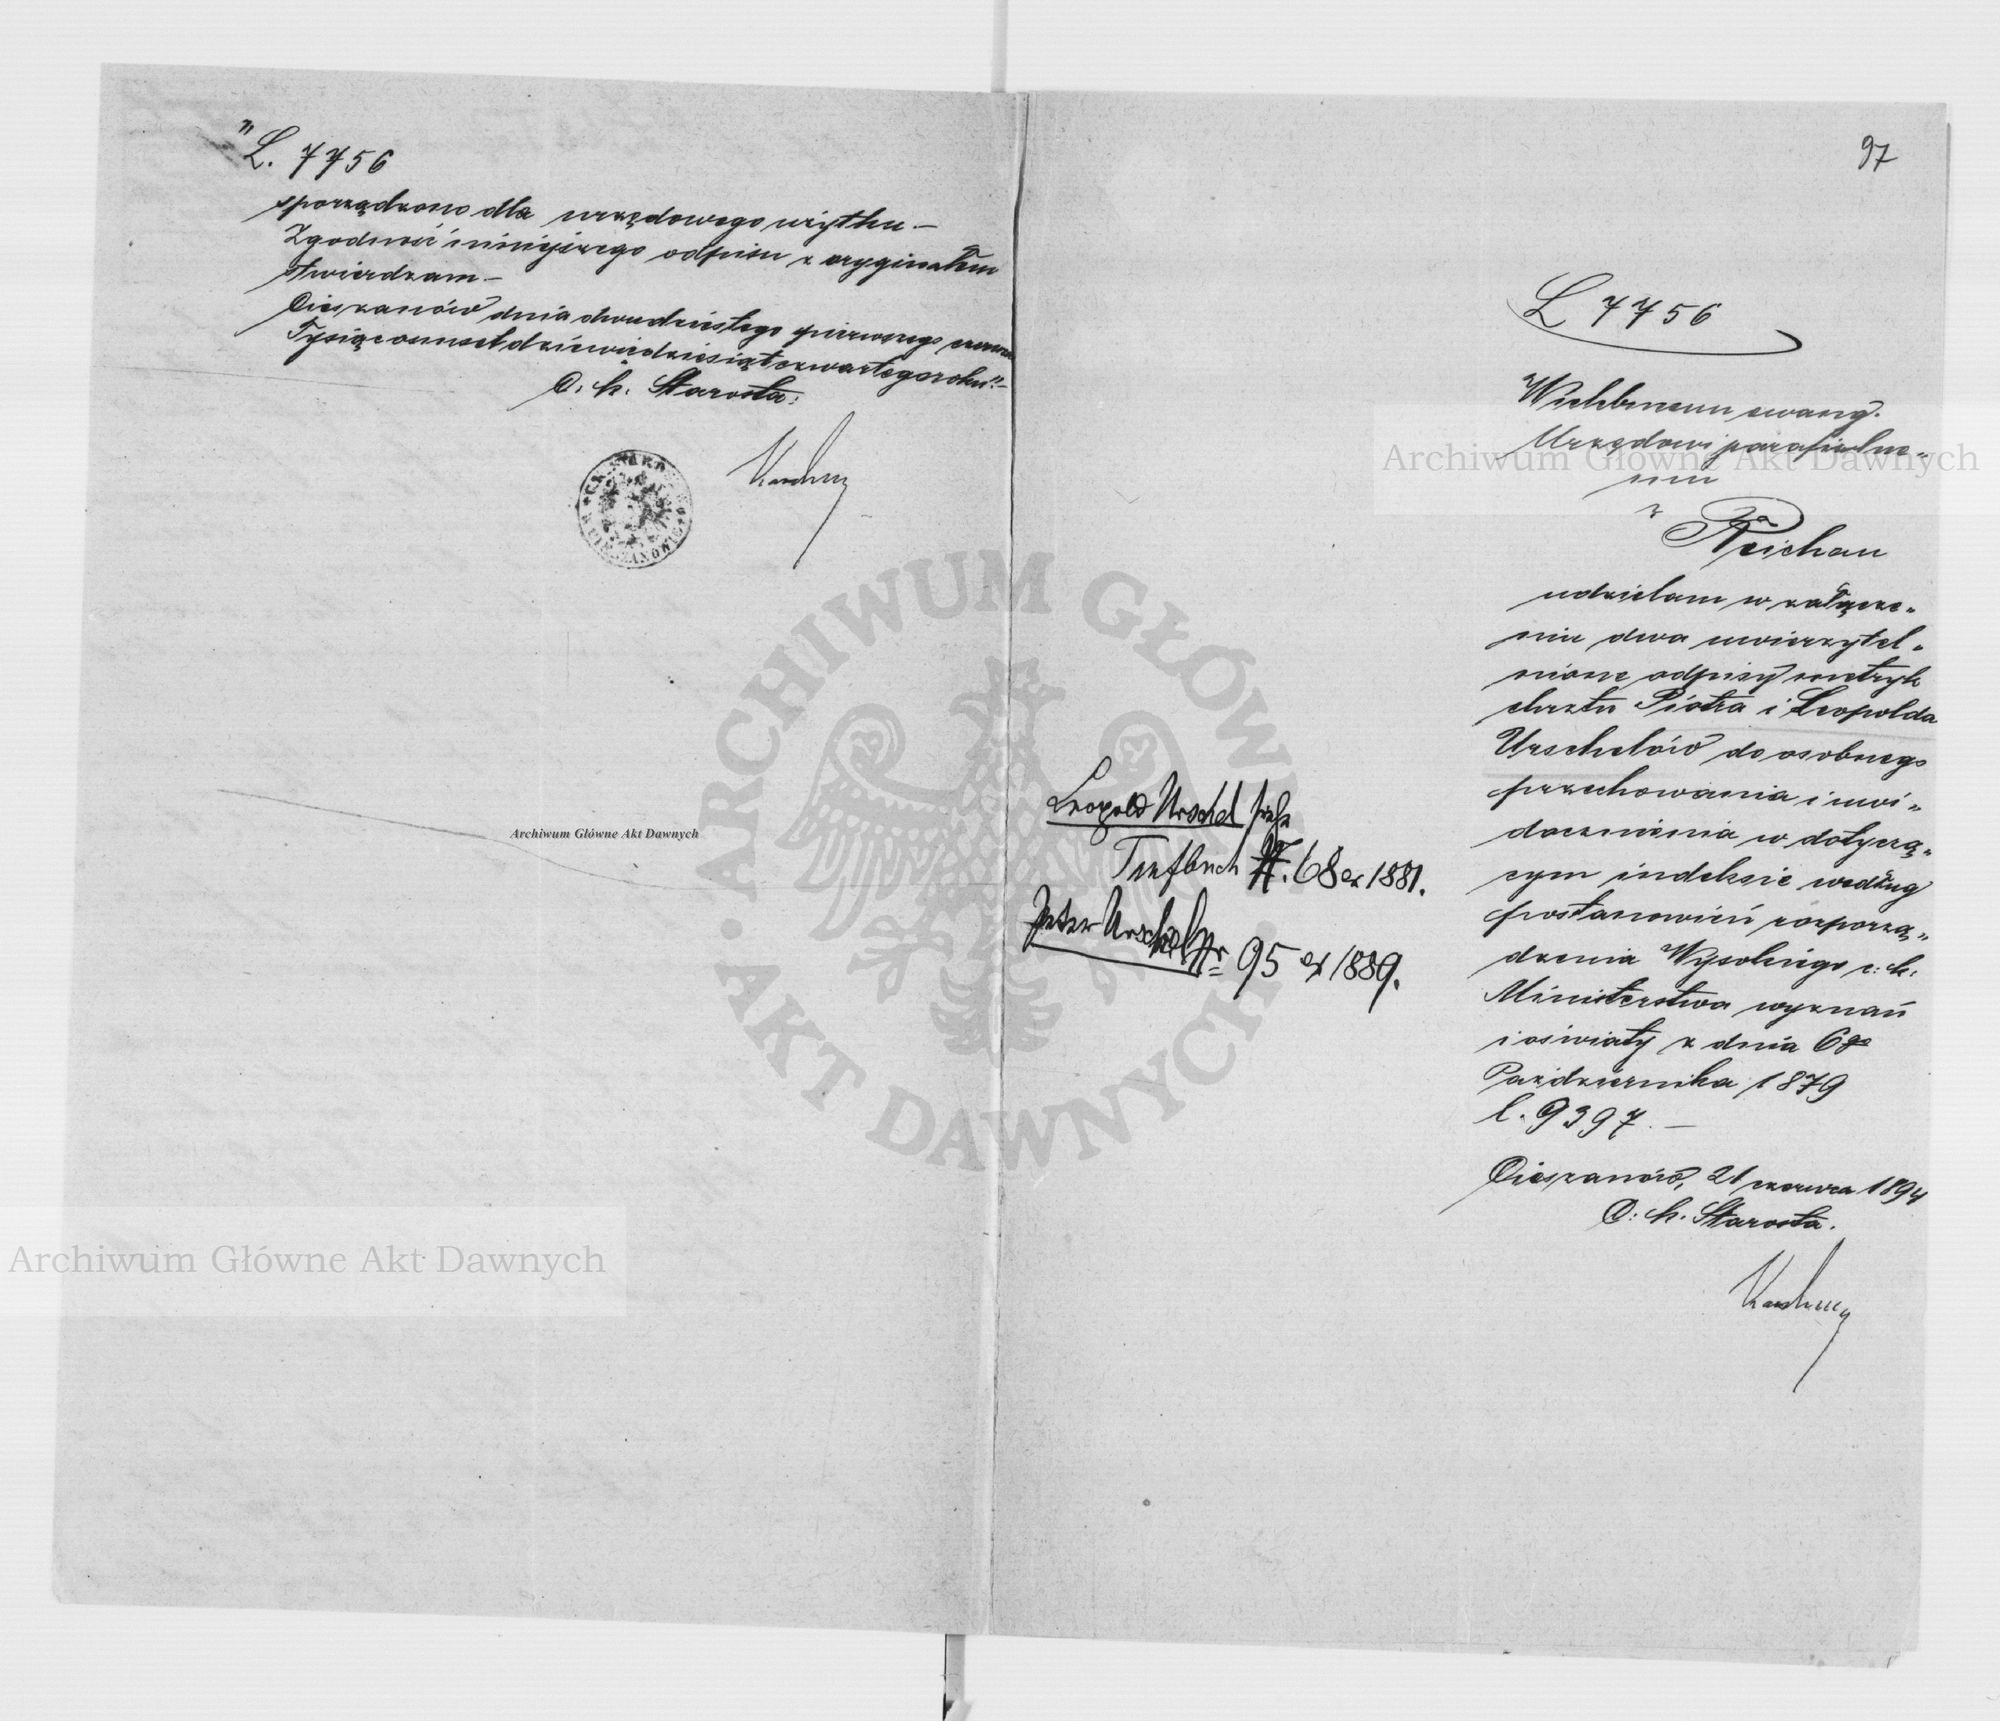 "L. 7756
sporządzono dla urzędowego użytku. —
Zgodność niniejszego odpisu z oryginałem
stwierdzam —
Cieszanów dnia dwudziestego pierwszego czerwca
Tysiąc osmset dziewiędziesiąt czwartego roku" —
C. k. Starosta:
97
L 7756
Wielebnemu ewang.
Urzędowi parafialne„
mu
z
Reichau
udzielam w załącze„
niu dwa uwierzytel„
nione odpisy metryk
chrztu Piotra i Leopolda
Urschelów do osobnego
przechowania i uwi„
docznienia w dotyczą„
cym indeksie według
postanowień rozporzą„
dzenia Wysokiego c: k:
Ministerstwa wyznań
i oświaty z dnia 6go
Października 1879
l. 9397. —
Cieszanów, 21 czerwca 1894
C: k. Starosta.
Leopold Urschel siehe
Taufbuch 68 ex 1881.
Peter Urschel Nr 95 ex 1889.
ARCHIWUM GŁÓWNE AKT DAWNYCH
Archiwum Główne Akt Dawnych
Archiwum Główne Akt Dawnych
Archiwum Główne Akt Dawnych